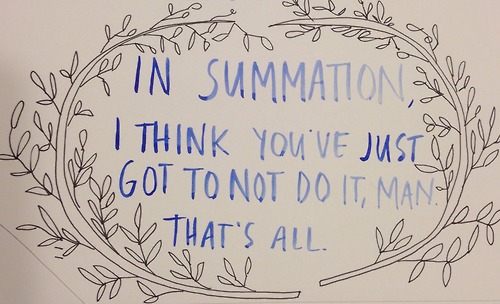 IN SUMMATION,
I THINK YOU'VE JUST
GOT TO NOT DO IT, MAN.
THAT'S ALL.